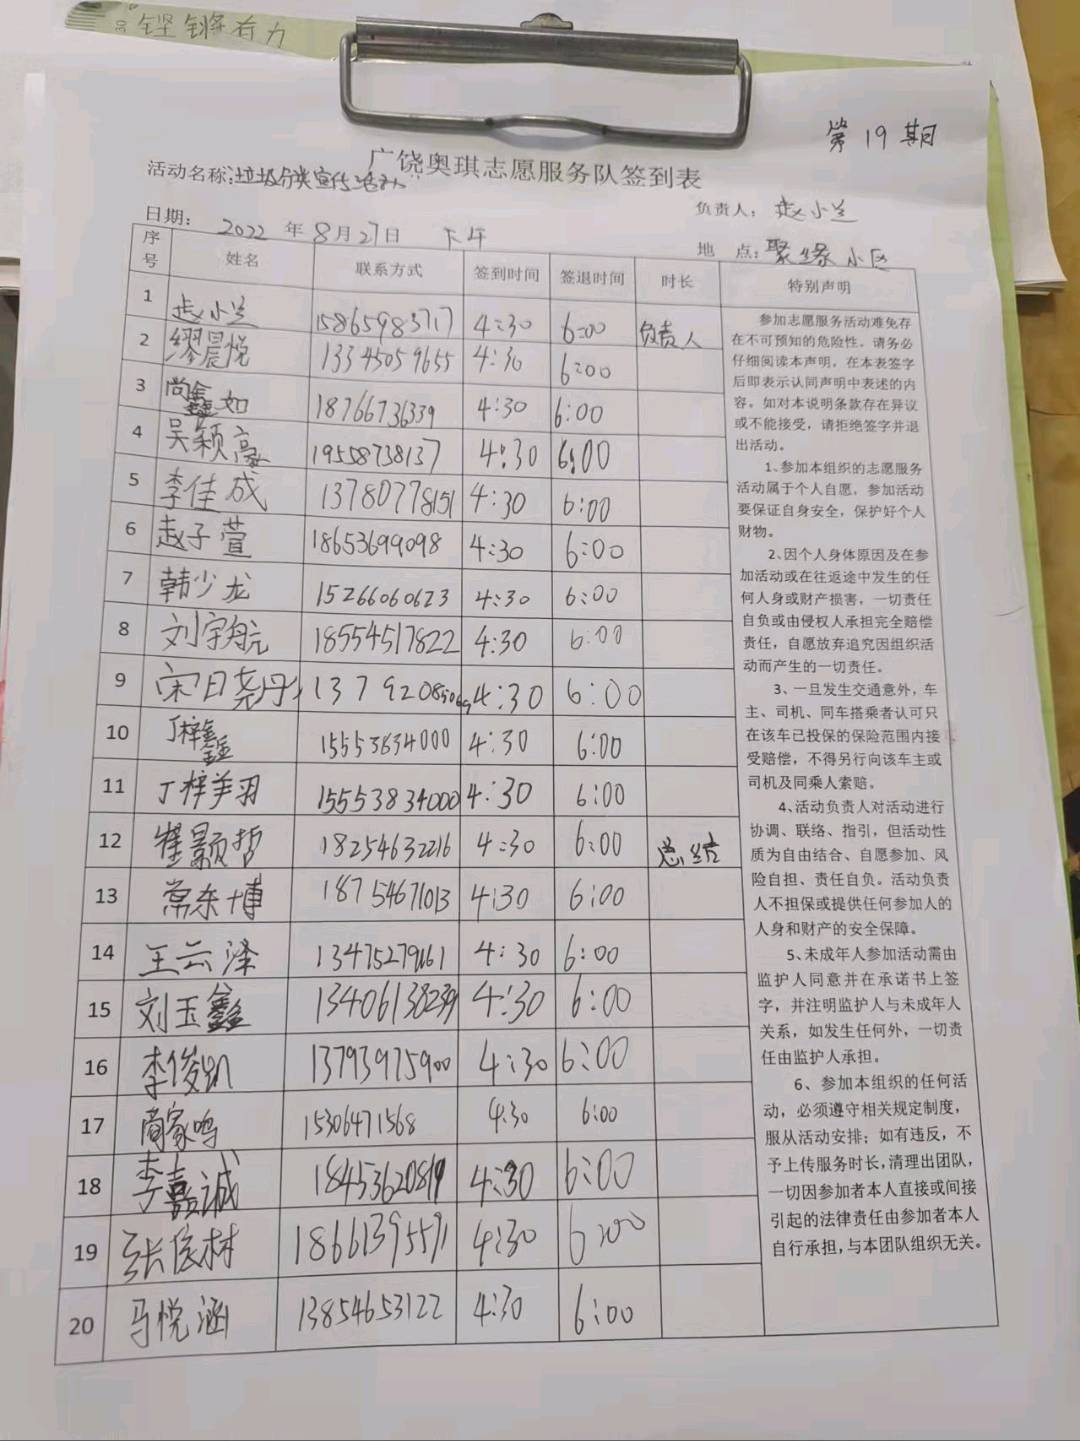 铿锵有力
第19期
广饶奥琪志愿服务队签到表
活动名称:垃圾分类宣传活动
负责人: 赵小兰
日期: 2022年8月27日 下午
地 点:聚缘小区
序号 姓名 联系方式 签到时间 签退时间 时长 特别声明
1 赵小兰 15865983717 4:30 6:00 负责人
2 缪晨悦 13345059655 4:30 6:00
3 尚鑫如 18766736339 4:30 6:00
4 吴颖豪 19558738137 4:30 6:00
5 李佳成 13780778151 4:30 6:00
6 赵子萱 18653699098 4:30 6:00
7 韩少龙 15266060623 4:30 6:00
8 刘宇航 18554517822 4:30 6:00
9 宋日尧丹 4:30 6:00
10 丁梓鑫 15553834000 4:30 6:00
11 丁梓羽 15553834000 4:30 6:00
12 崔颢哲 18254632216 4:30 6:00 总结
13 常东博 18754671013 4:30 6:00
14 王云泽 13475279161 4:30 6:00
15 刘玉鑫 13406138239 4:30 6:00
16 李俊凯 13793975900 4:30 6:00
17 商家鸣 15306471568 4:30 6:00
18 李嘉诚 18453620819 4:30 6:00
19 张俊林 18661395591 4:30 6:00
20 马悦涵 13854653122 4:30 6:00
参加志愿服务活动难免存
在不可预知的危险性。请务必
仔细阅读本声明，在本表签字
后即表示认同声明中表述的内
容。如对本说明条款存在异议
或不能接受，请拒绝签字并退
出活动。
1、参加本组织的志愿服务
活动属于个人自愿，参加活动
要保证自身安全，保护好个人
财物。
2、因个人身体原因及在参
加活动或在往返途中发生的任
何人身或财产损害，一切责任
自负或由侵权人承担完全赔偿
责任，自愿放弃追究因组织活
动而产生的一切责任。
3、一旦发生交通意外，车
主、司机、同车搭乘者认可只
在该车已投保的保险范围内接
受赔偿，不得另行向该车主或
司机及同乘人索赔。
4、活动负责人对活动进行
协调、联络、指引，但活动性
质为自由结合、自愿参加、风
险自担、责任自负。活动负责
人不担保或提供任何参加人的
人身和财产的安全保障。
5、未成年人参加活动需由
监护人同意并在承诺书上签
字，并注明监护人与未成年人
关系，如发生任何外，一切责
任由监护人承担。
6、参加本组织的任何活
动，必须遵守相关规定制度，
服从活动安排；如有违反，不
予上传服务时长，清理出团队，
一切因参加者本人直接或间接
引起的法律责任由参加者本人
自行承担，与本团队组织无关。